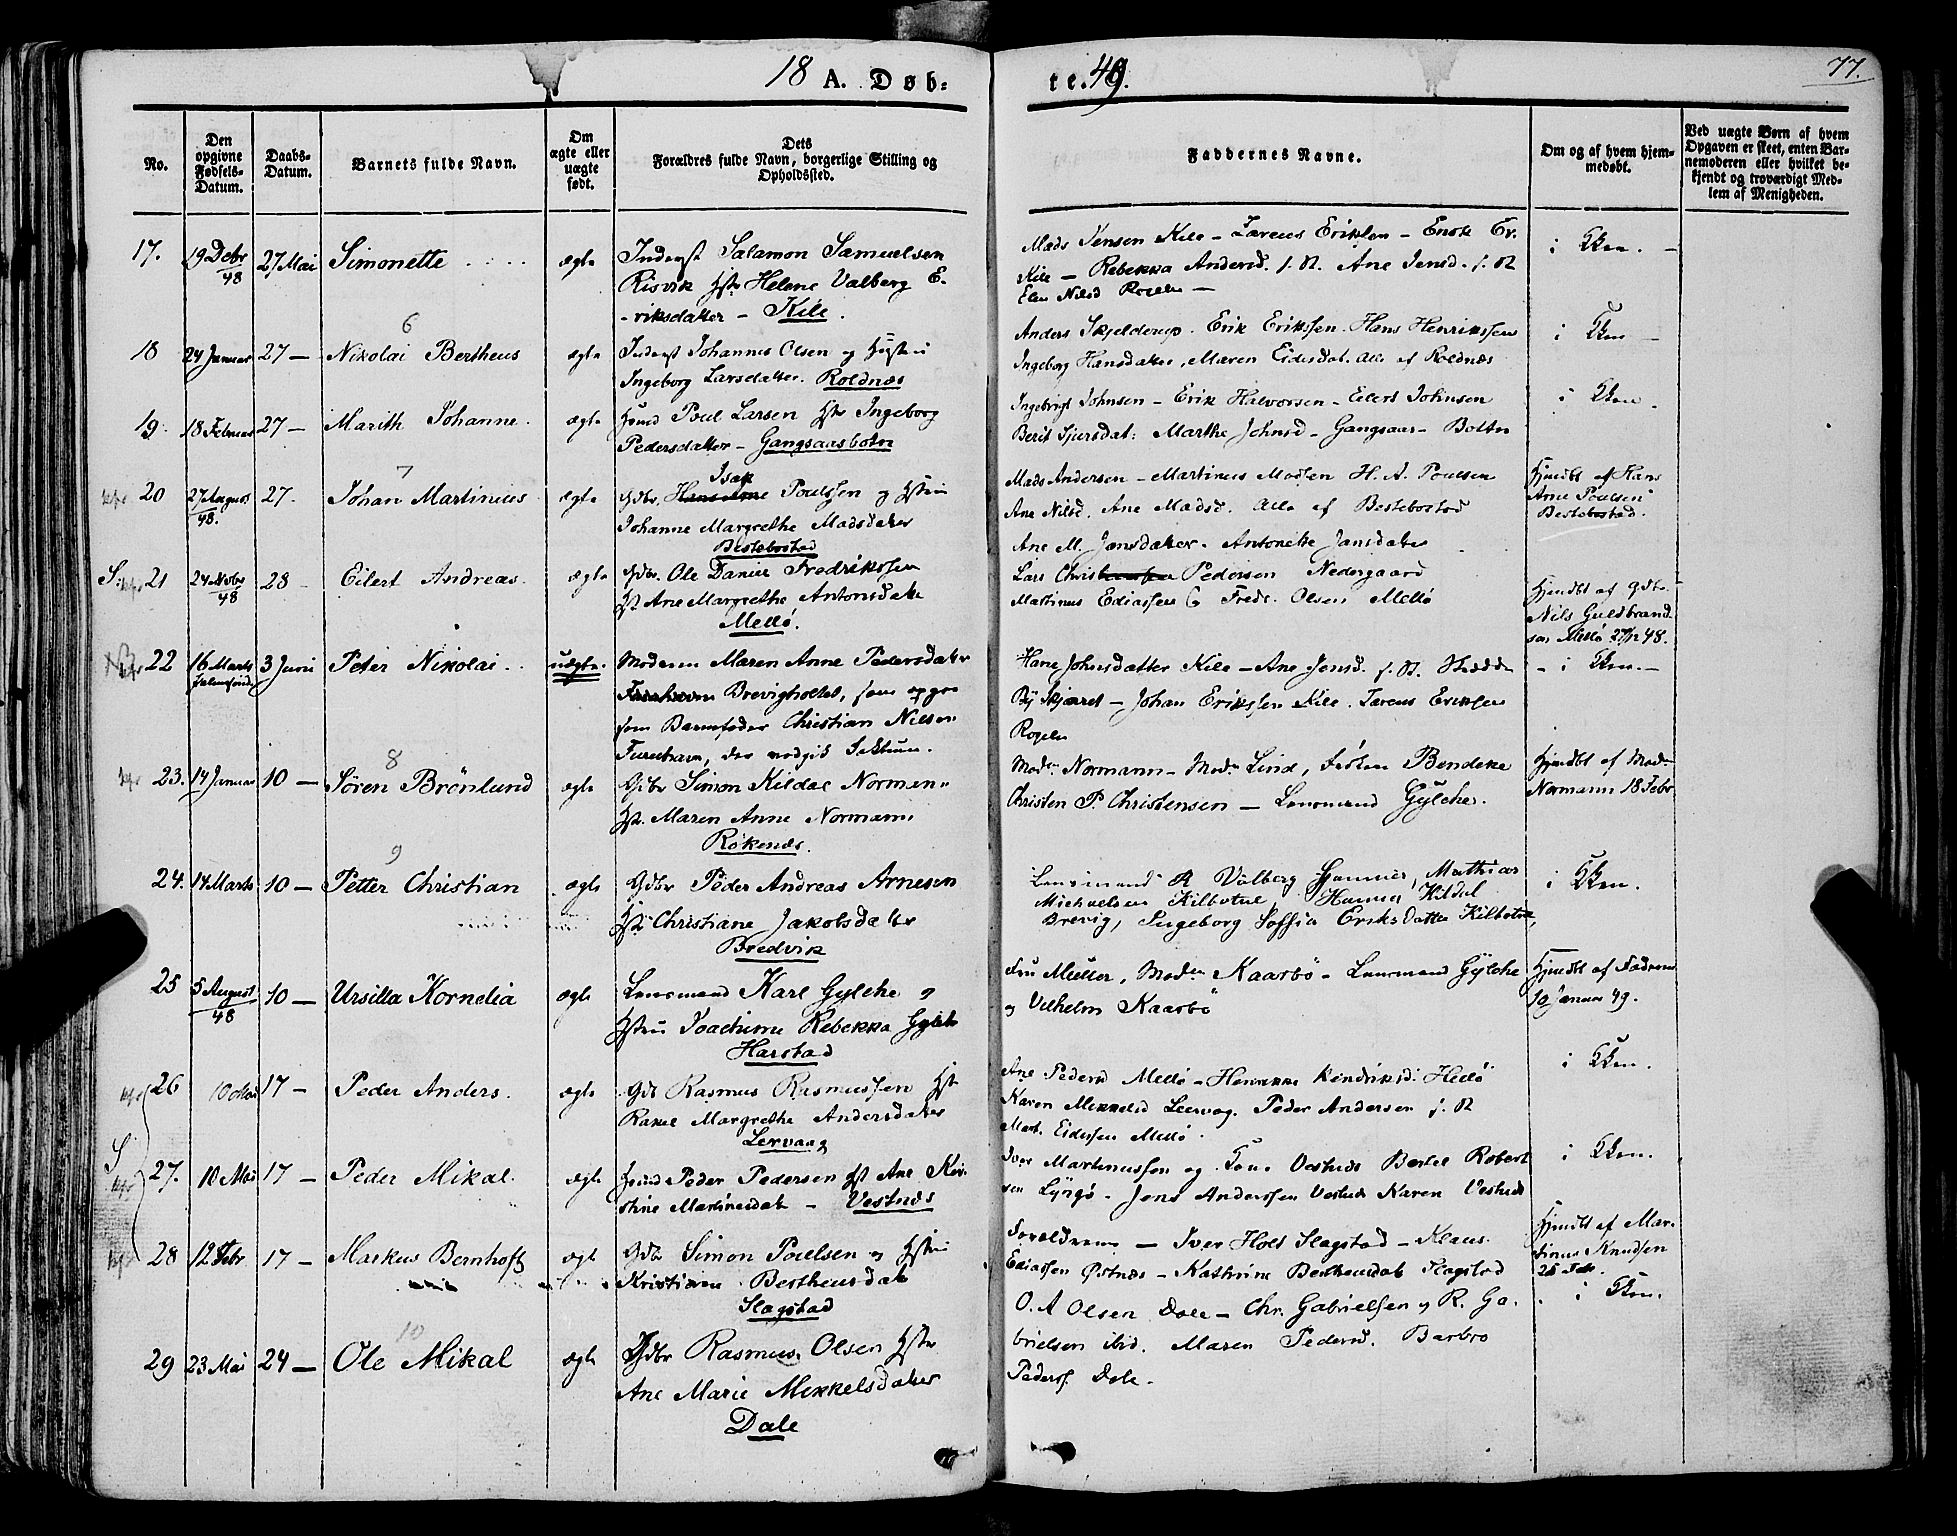 18 A. Døb=
te. 49.
77.
No.
Den opgivne Fødsels-Datum.
Daabs-Datum.
Barnets fulde Navn.
Om ægte eller uægte født.
Dets Forældres fulde Navn, borgerlige Stilling og Opholdssted.
Faddernes Navne.
Om og af hvem hjemmedøbt.
Ved uægte Børn af hvem Opgaven er skeet, enten Barnemoderen eller hvilket bekjendt og troværdigt Medlem af Menigheden.
17. 19 Debr 48 27 Mai Simonette ægte
Inderst Salamon Samuelsen
Risvik Hst Helene Valberg E-
-riksdatter - Kile.
Mads Jensen Kile - Larens Eriksen - Enok Er.
Kile - Rebekka Andersd. s. St. Ane Jensd. s. St
Elen Nilsd
i Kken. -
6
18 24 Januar 27 - Nikolai Bertheus ægte
Inderst Johannes Olsen og Hustru
Ingeborg Larsdatter. Roldnæs
Anders Skjelderup. Erik Erikssen. Hans Henrikssen
Ingeborg Hansdatter, Maren Eidisdat. alle af Roldnæs
i Kken -
19. 18 Februar 27 - Marith Johanne. ægte
Huusmd Poul Larsen Hst Ingeborg
Pedersdatter - Gangsaasbotn
Ingebrigt Johnsen - Erik Halvorsen - Eilert Johnsen
Berit Sjursdat: Marthe Johnsd - Gangsaas - Botten
i Kken.
7
20 27 August 48. 27. Johan Martinius ægte
Isak
Gdbr. Hans Arne Poulssen og Hstru
Johanne Margrethe Madsdatter
Bestebostad
Mads Andersen - Martinus Madsen H. A. Poulsen
Ane Nilsd. Ane Madsd. Alle af Bestebostad
Hjmdbt af Hans
Arne Poulsen
Bestebostad.
S. 21 24 Nobr 48 28 - Eilert Andreas. ægte
Gdbr. Ole Daniel Fredrikssen
Hst Ane Margrethe Antonsdatter
Mellø.
Ane M. Jansdatter. Antonette Jansdatter
Lars Pedersen Nedergaard
Martinus Ediassen & Fredr. Olsen Mellø
Hjmdbt af Gdbr.
Nils Guldbrand
sen Mellø 27/12 48.
NB 22 16 Marts 3 Juni Peter Nikolai. uægte.
Moderen Maren Anne Pedersdatter
Brevigholtet, som opgav
som Barnefader Christian Nilsen
Fuxehavn, der vedgik Faktum.
Hane Johnsdatter Kile - Ane Jonsd. s. St.
Johan Erikssen Kile. Larens Eriksen
- i Kken. -
8
23. 14 Januar 10 - Søren Brønlund ægte
Gdbr Simon Kildal Normann
Hst. Maren Anne Normann
Røkenæs.
Mad. Normann - Mad. Lind, Frøken Bendeke
Christen P. Christensen - Lensmand Gylche.
Hjmdbt af Mad.
Normann 18 Febr
9
24. 14 Marts 10 - Petter Christian ægte
Gdbr Peder Andreas Arnesen
Hst Christiane Jakobsdatter
Bredvik
Lensmand R Valberg Mathias
Michaelsen Kilbotn, Hanna Kildal
Brevig, Ingeborg Soffia Eriksdatter Kilbotn,
i Kken.
25 5 August 48 10 - Ursilla Kornelia ægte
Lensmand Karl Gylche og
Hstru Joachime Rebekka Gylche
Harstad
Fru Müller, Mad. Kaarbø - Lensmand Gylche
og Vilhelm Kaarbø
Hjmdbt af Faderen
10 Januar 49.
26 10 Mai 17 - Peder Anders. ægte
Gdb Rasmus Rasmussen Hst
Rakel Margrethe Andersdatter
Lervaag
Ane Pedersd Mellø - Henrikke Hendriksd. Mellø
Karen Mikkelsd Leervog. Peder Andersen s. St
Mart. Eidissen Mellø.
i Kken.
S
27. 10 Mai 17 - Peder Mikal. ægte
Huusmd Peder Pedersen Hst Ane Kir-
stine Martinusdat - Vestnæs
Iver Martinussen og Kone Vestnæs Bertel Robert
sen Lyngø. Jens Anderssen Vestnæs Karen Vestnæs
i Kken.
28 12 Febr 17 - Markus Bernhoft ægte
Gdbr Simon Poulsen og Hstru
Kristianne Bertheusdat
Slagstad
Forældrene - Iver Holst Slagstad - Klaus
Ediassen Østnæs - Kathrine Bertheusdat Slagstad
Hjmdbt af Mar-
tinus Knudsen
25 Febr.
10
29 23 Mai 24 - Ole Mikal ægte
Gdbr Rasmus Olsen Hstru
Ane Marie Mikkelsdatter
Dale
O. A Olsen Dale - Chr. Gabrielsen og R. Ga-
brielsen ibid. Maren Pedersd. Barbro
Pedersd. Dale.
i Kken.